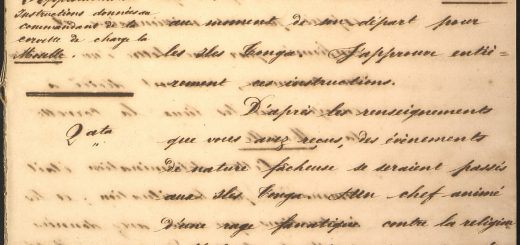 Instructions données au
commandant de la
corvette de charge la
Moselle.
au moment de son départ pour
les îles Tonga. J'approuve entiè-
rement ces instructions.
D'après les renseignements
que vous avez reçus, des événements
de nature fâcheuse se seraient passés
aux îles Tonga. Un chef animé
d'une rage fanatique contre la religion